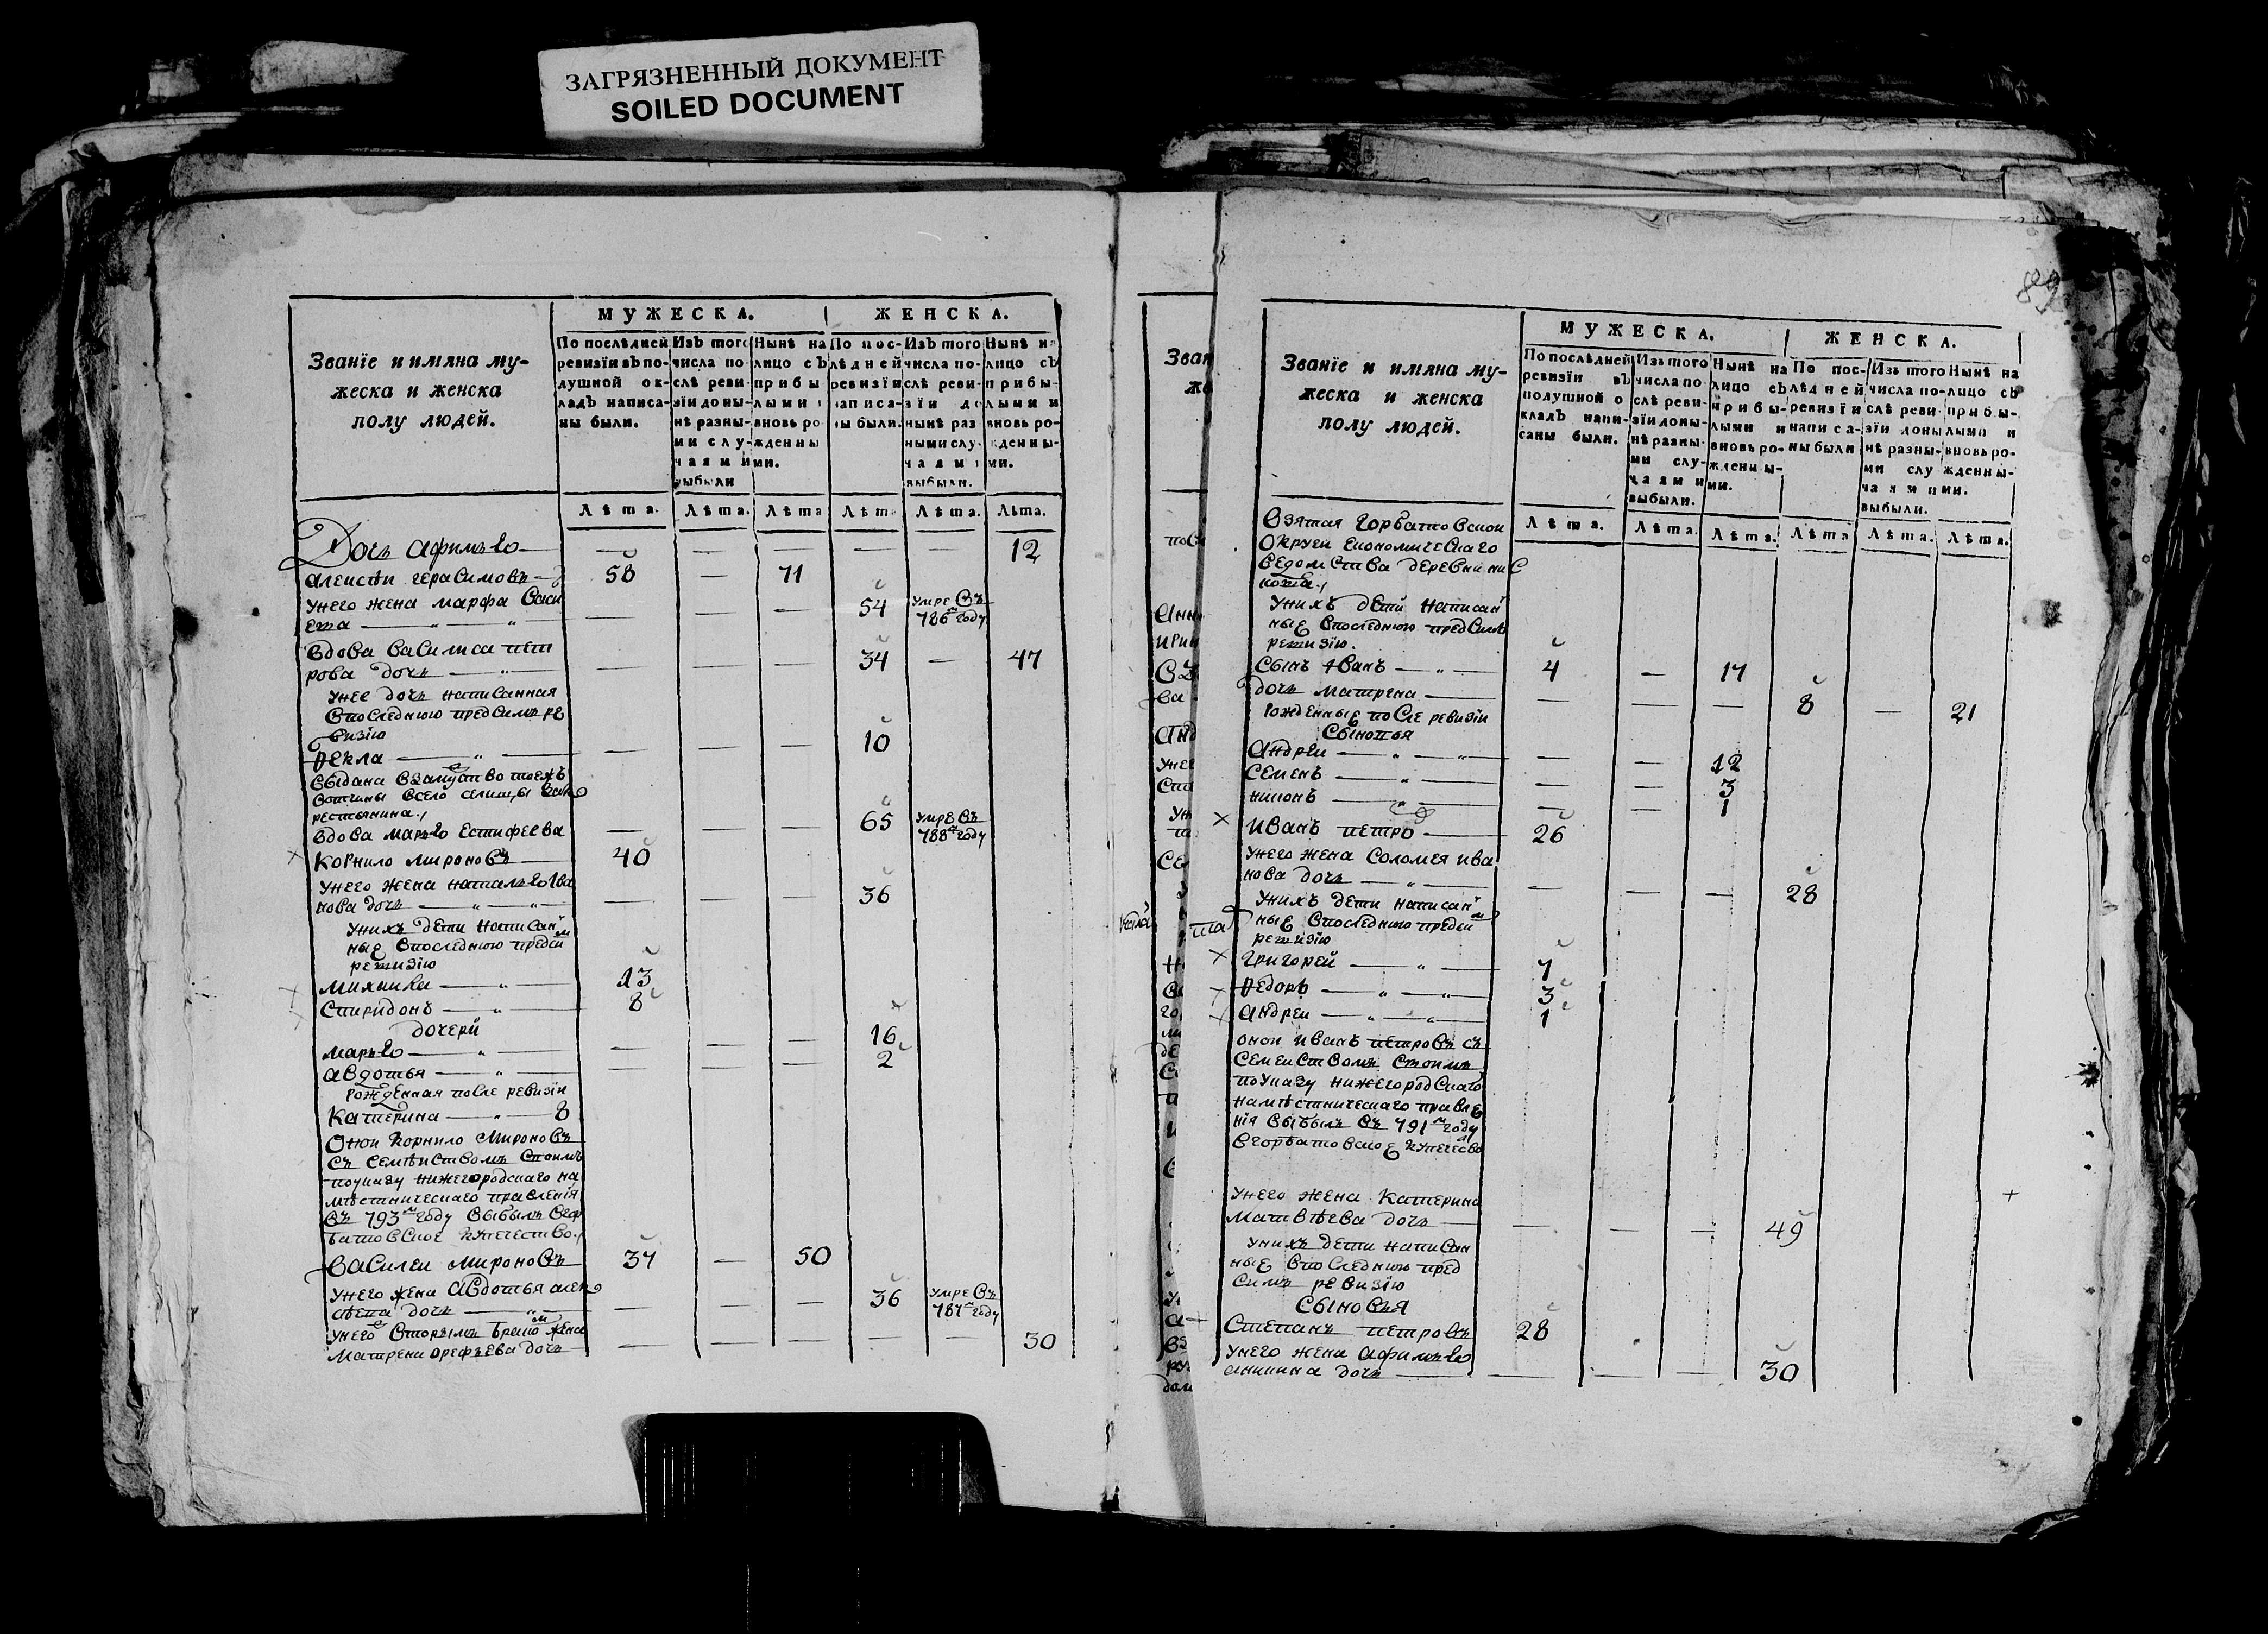 ЗАГРЯЗНЕННЫЙ ДОКУМЕНТ
SOILED DOCUMENT
Званїе и имяна му-
жеска и женска
полу людей.
МУЖЕСКА.
ЖЕНСКА.
По послѣдней
ревизїи въ по-
душной ок-
ладъ написа-
ны были.
Изъ того
числа по-
слѣ реви-
зїи доны-
нѣ разны-
ми слу-
чаями
выбыли
Нынѣ на
лицо съ
прибы
лыми
вновь ро
жденны
ми.
По пос-
лѣдней
ревизїи
написа-
ны были.
Изъ того
числа по-
слѣ реви-
зїи до
нынѣ раз
ными слу-
чаями
выбыли.
Нынѣ на
лицо съ
прибы-
лыми и
вновь ро-
жденны-
ми.
Лѣта. Лѣта. Лѣта Лѣта Лѣта. Лѣта.
Дочь Афимья — — — — — 12
Алексѣй Герасимовъ 58 — 71
У него жена Марфа
— — — 54 умре въ 786м году
Вдова Василиса Пет
рова дочь — — — 34 — 47
У нее дочь написанная
в последнюю пред симъ ре
визїю
Фекла — — — 10
выдана взамуство тоежъ
вотчины
крестьянина.
Вдова Марья Естифеева — — — 65 умре въ 788м году
Корнило Мироновъ 40
У него жена Наталья Ива
нова дочь — — — 36
У нихъ дети написан
ные в последнюю пред сим
ревизїю
Михайла 13
Спиридонъ 8
дочери
Марья — — — 16
Авдотья — — — 2
Рожденная после ревизїи
Катерина — 8
Оной Корнило Мироновъ
съ семѣйствомъ своимъ
по указу Нижегородскаго на
мѣстническаго правленїя
въ 793м году выбылъ в Гор
батовское купечество
Василей Мироновъ 37 — 50
У него жена Авдотья Алек
сѣева дочь — — — 36 умре въ 787м году
У него вторымъ браком жена
Матрена Орефьева дочь — — — — — 30
89
Званїе и имяна му-
жеска и женска
полу людей.
МУЖЕСКА.
ЖЕНСКА.
По послѣдней
ревизїи въ
подушной о
кладъ напи-
саны были.
Изъ того
числа по
слѣ реви-
зїи доны-
нѣ разны-
ми слу-
чаями
выбыли.
Нынѣ на
лицо съ
прибы-
лыми и
вновь ро-
жденны-
ми.
По пос-
лѣдней
ревизїи
написа-
ны были
Изъ того
числа по-
слѣ реви-
зїи доны
нѣ разны-
ми слу
чаями
выбыли.
Нынѣ на
лицо съ
прибы-
лыми и
вновь ро-
жденны-
ми.
Лѣта. Лѣта. Лѣта. Лѣта Лѣта. Лѣта.
Взятая Горбатовской
округи економическаго
ведомства деревни
У нихъ дети написан
ные в последнюю пред симъ
ревизїю.
Сынъ Иванъ 4 — 17
дочь Матрена — — — 8 — 21
рожденные после ревизїи
Сыновья
Андреи — — 12
Семенъ — — 3
Никонъ — — 1
Иванъ Петров 26
У него жена Соломея Ива
нова дочь — — — 28
У нихъ дети написан
ные в последнюю пред сим
ревизїю
Григорей 7
Федоръ 3
Андреи 1
оной Иванъ Петровъ съ
семейством своимъ
по указу Нижегородскаго
намѣстническаго правле
нїя выбылъ въ 791м году
в Горбатовское купечество
У него жена Катерина
Матвѣева дочь — — — 49
У нихъ дети написан
ные в последнюю пред
симъ ревизїю
Сыновья
Степанъ Петровъ 28
У него жена Афимья
Аникина дочь — — — 30